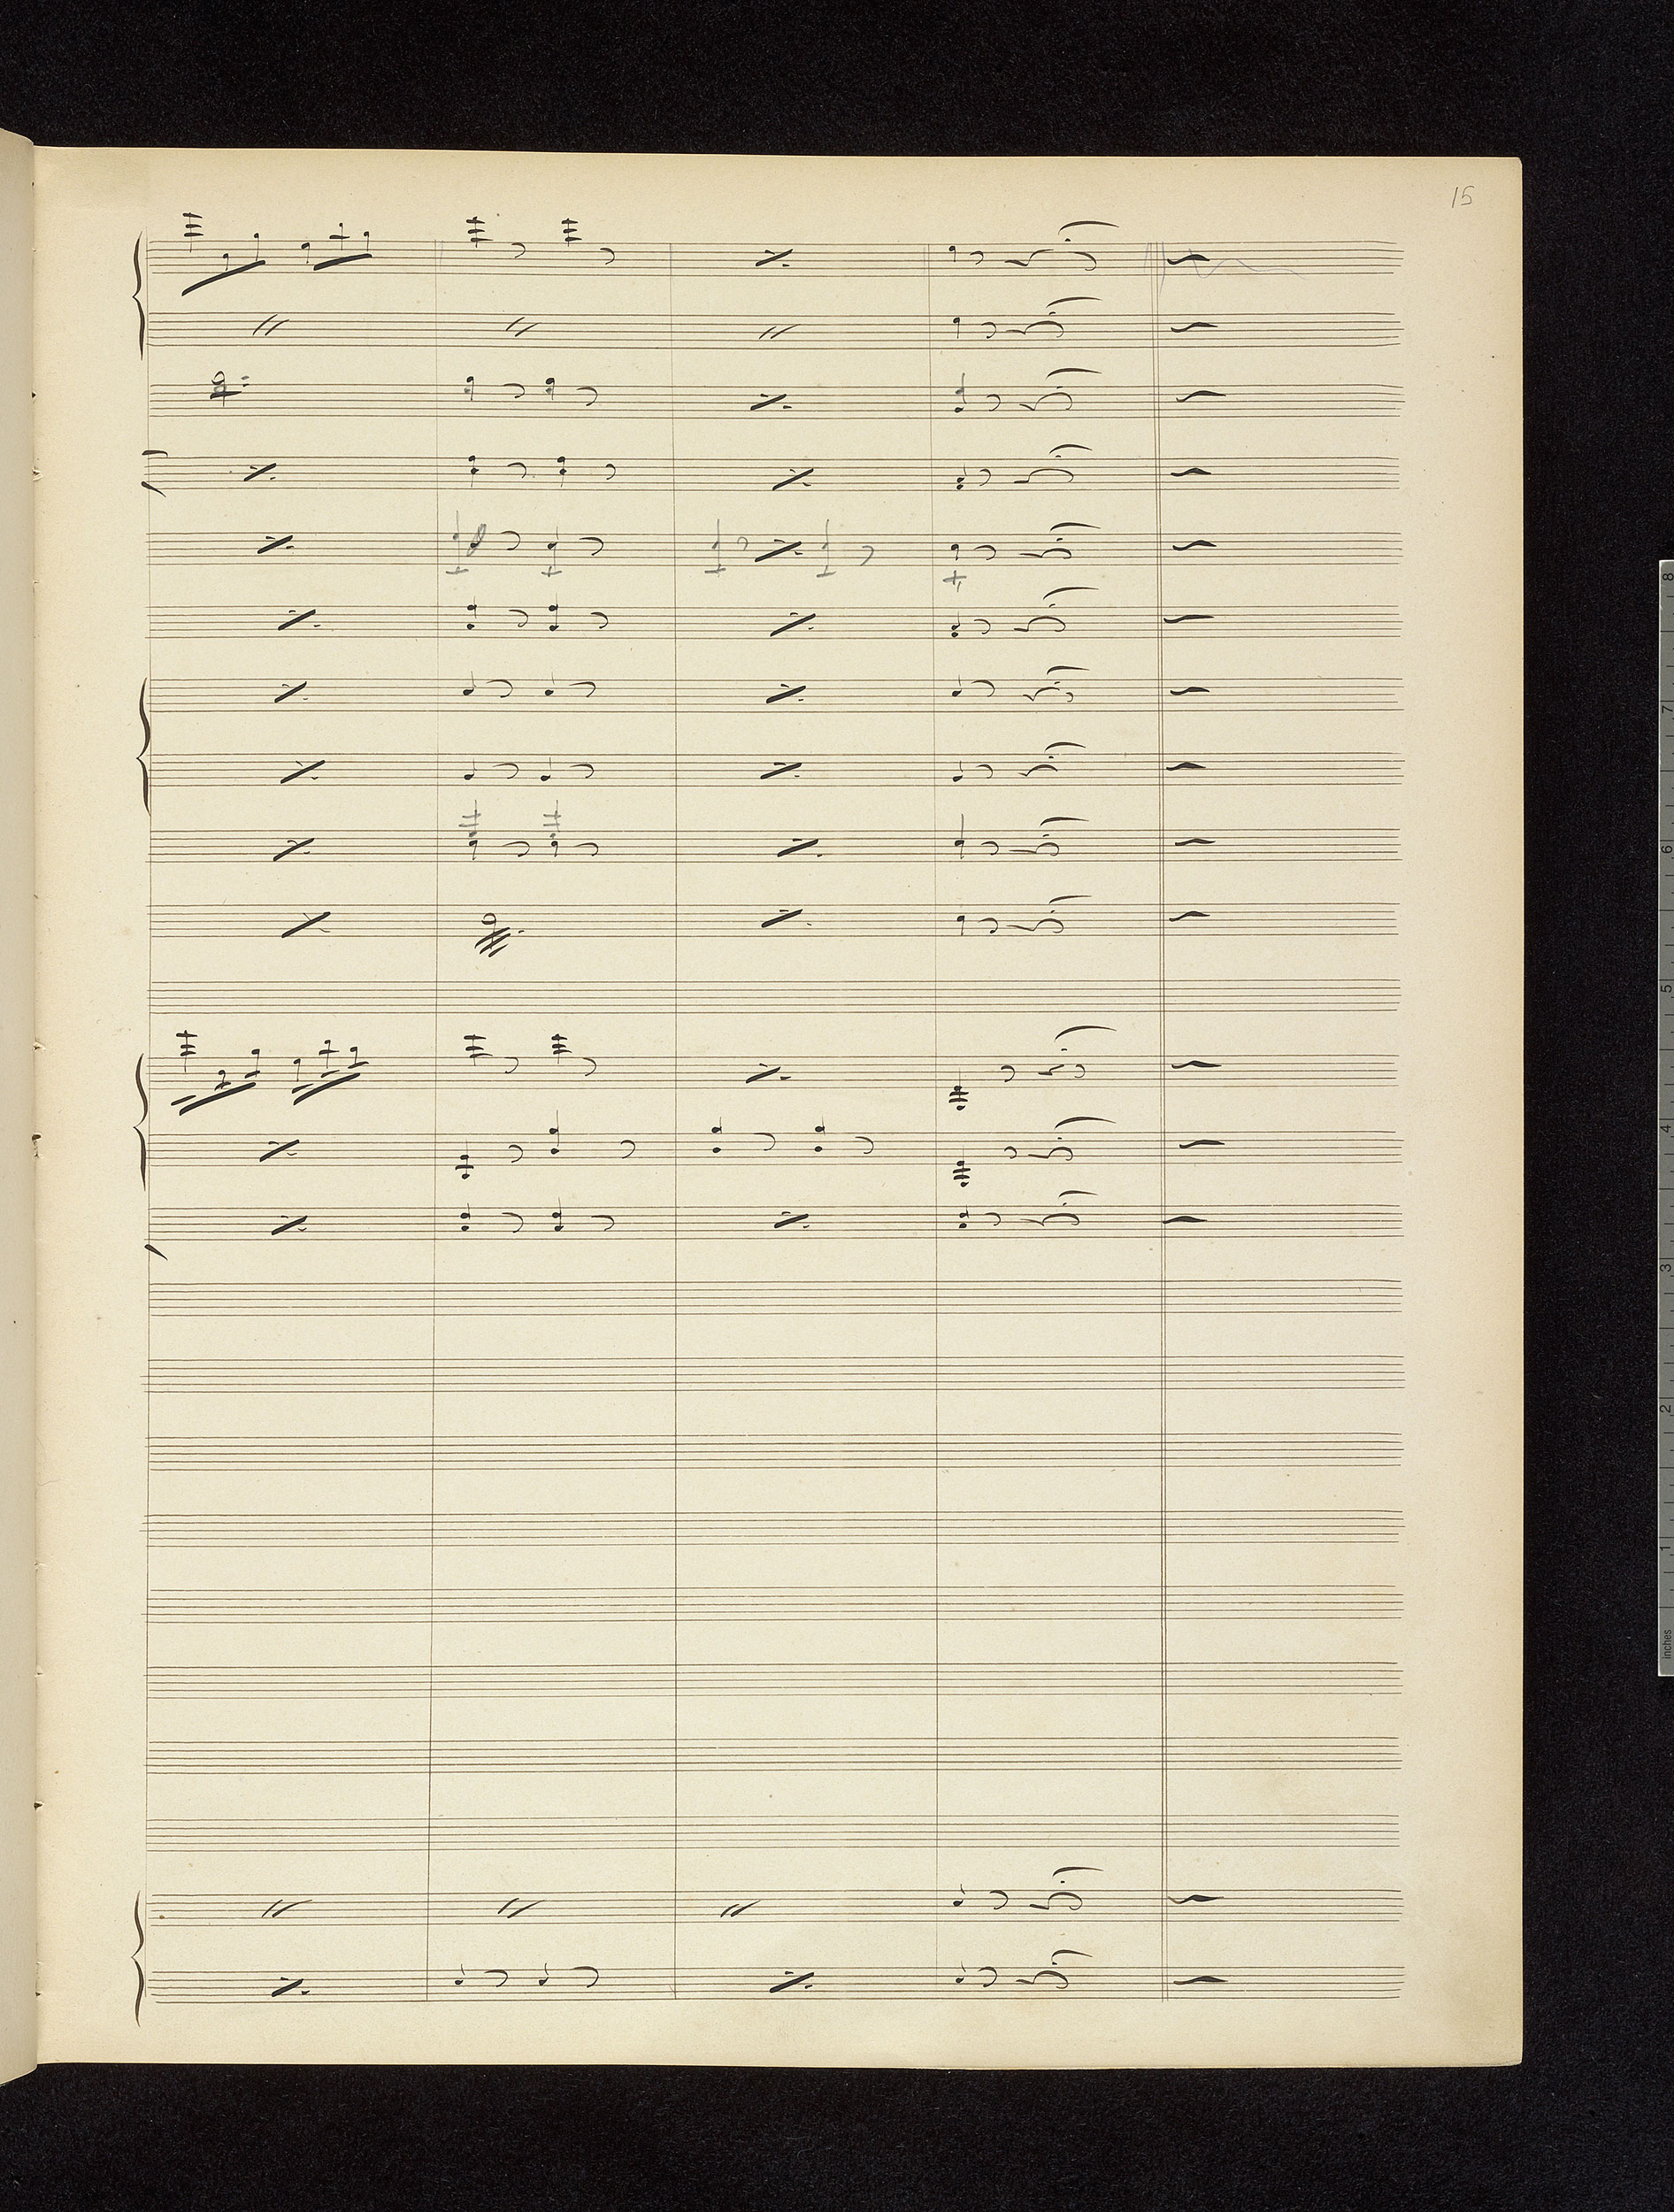 15
8
7
6
5
4
3
2
1
inches